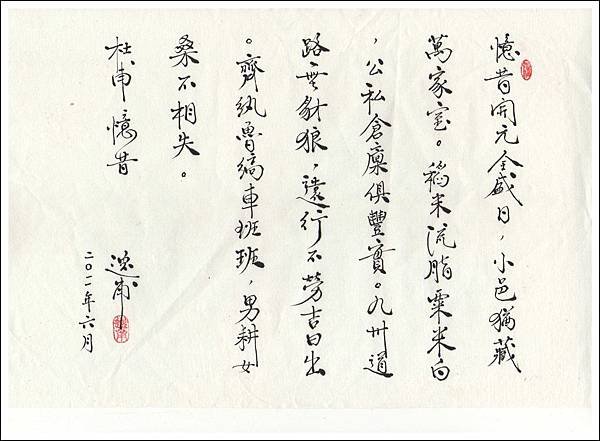 憶昔開元全盛日，小邑猶藏
萬家室。稻米流脂粟米白
，公私倉廩俱豐實。九州道
路無豺狼，遠行不勞吉日出
。齊紈魯縞車班班，男耕女
桑不相失。
杜甫憶昔
逸甫
二〇一一年六月